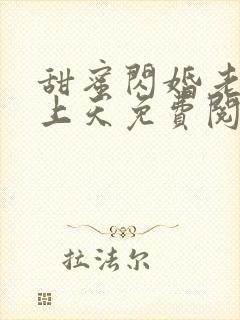 甜蜜閃婚老
上天免費閱
拉法尔